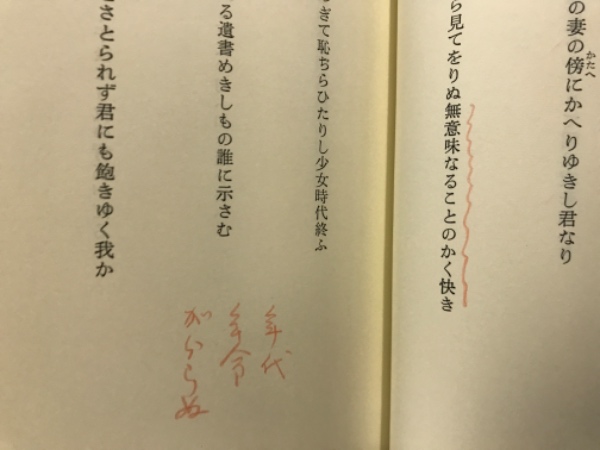 の妻の傍にかへりゆきし君なり
かたへ
ら見てをりぬ無意味なることのかく快き
ぎて恥ぢらひたりし少女時代終ふ
る遺書めきしもの誰に示さむ
さとられず君にも飽きゆく我か
年代
年令
がからぬ